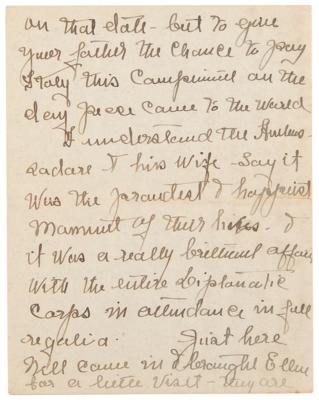 on that date - but to give
your father the chance to pay
Italy this Compliment on the
day peace came to the World
I understand the Ambas-
sadore & his Wife - Say it
was the proudest & happiest
Mamunt of their lives. &
it was a really brilliant affair
with the entire Diplomatic
Corps in attendance in full
regalia. Just here
Nell came in & brought Ellen
for a little visit - they are